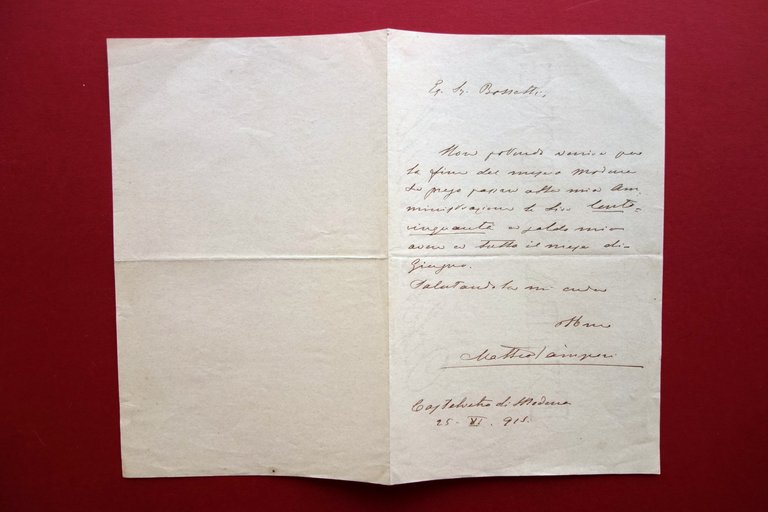 Eg. Sg. Bossetti,
Non potendo venire per
la fine del mese a Modena
La prego passare alla mia Am-
ministrazione le Lire Cento-
cinquanta a saldo mio
avere a tutto il mese di
Giugno.
Salutandola mi creda
Matteo Campori
Castelvetro di Modena
25. VI. 915.